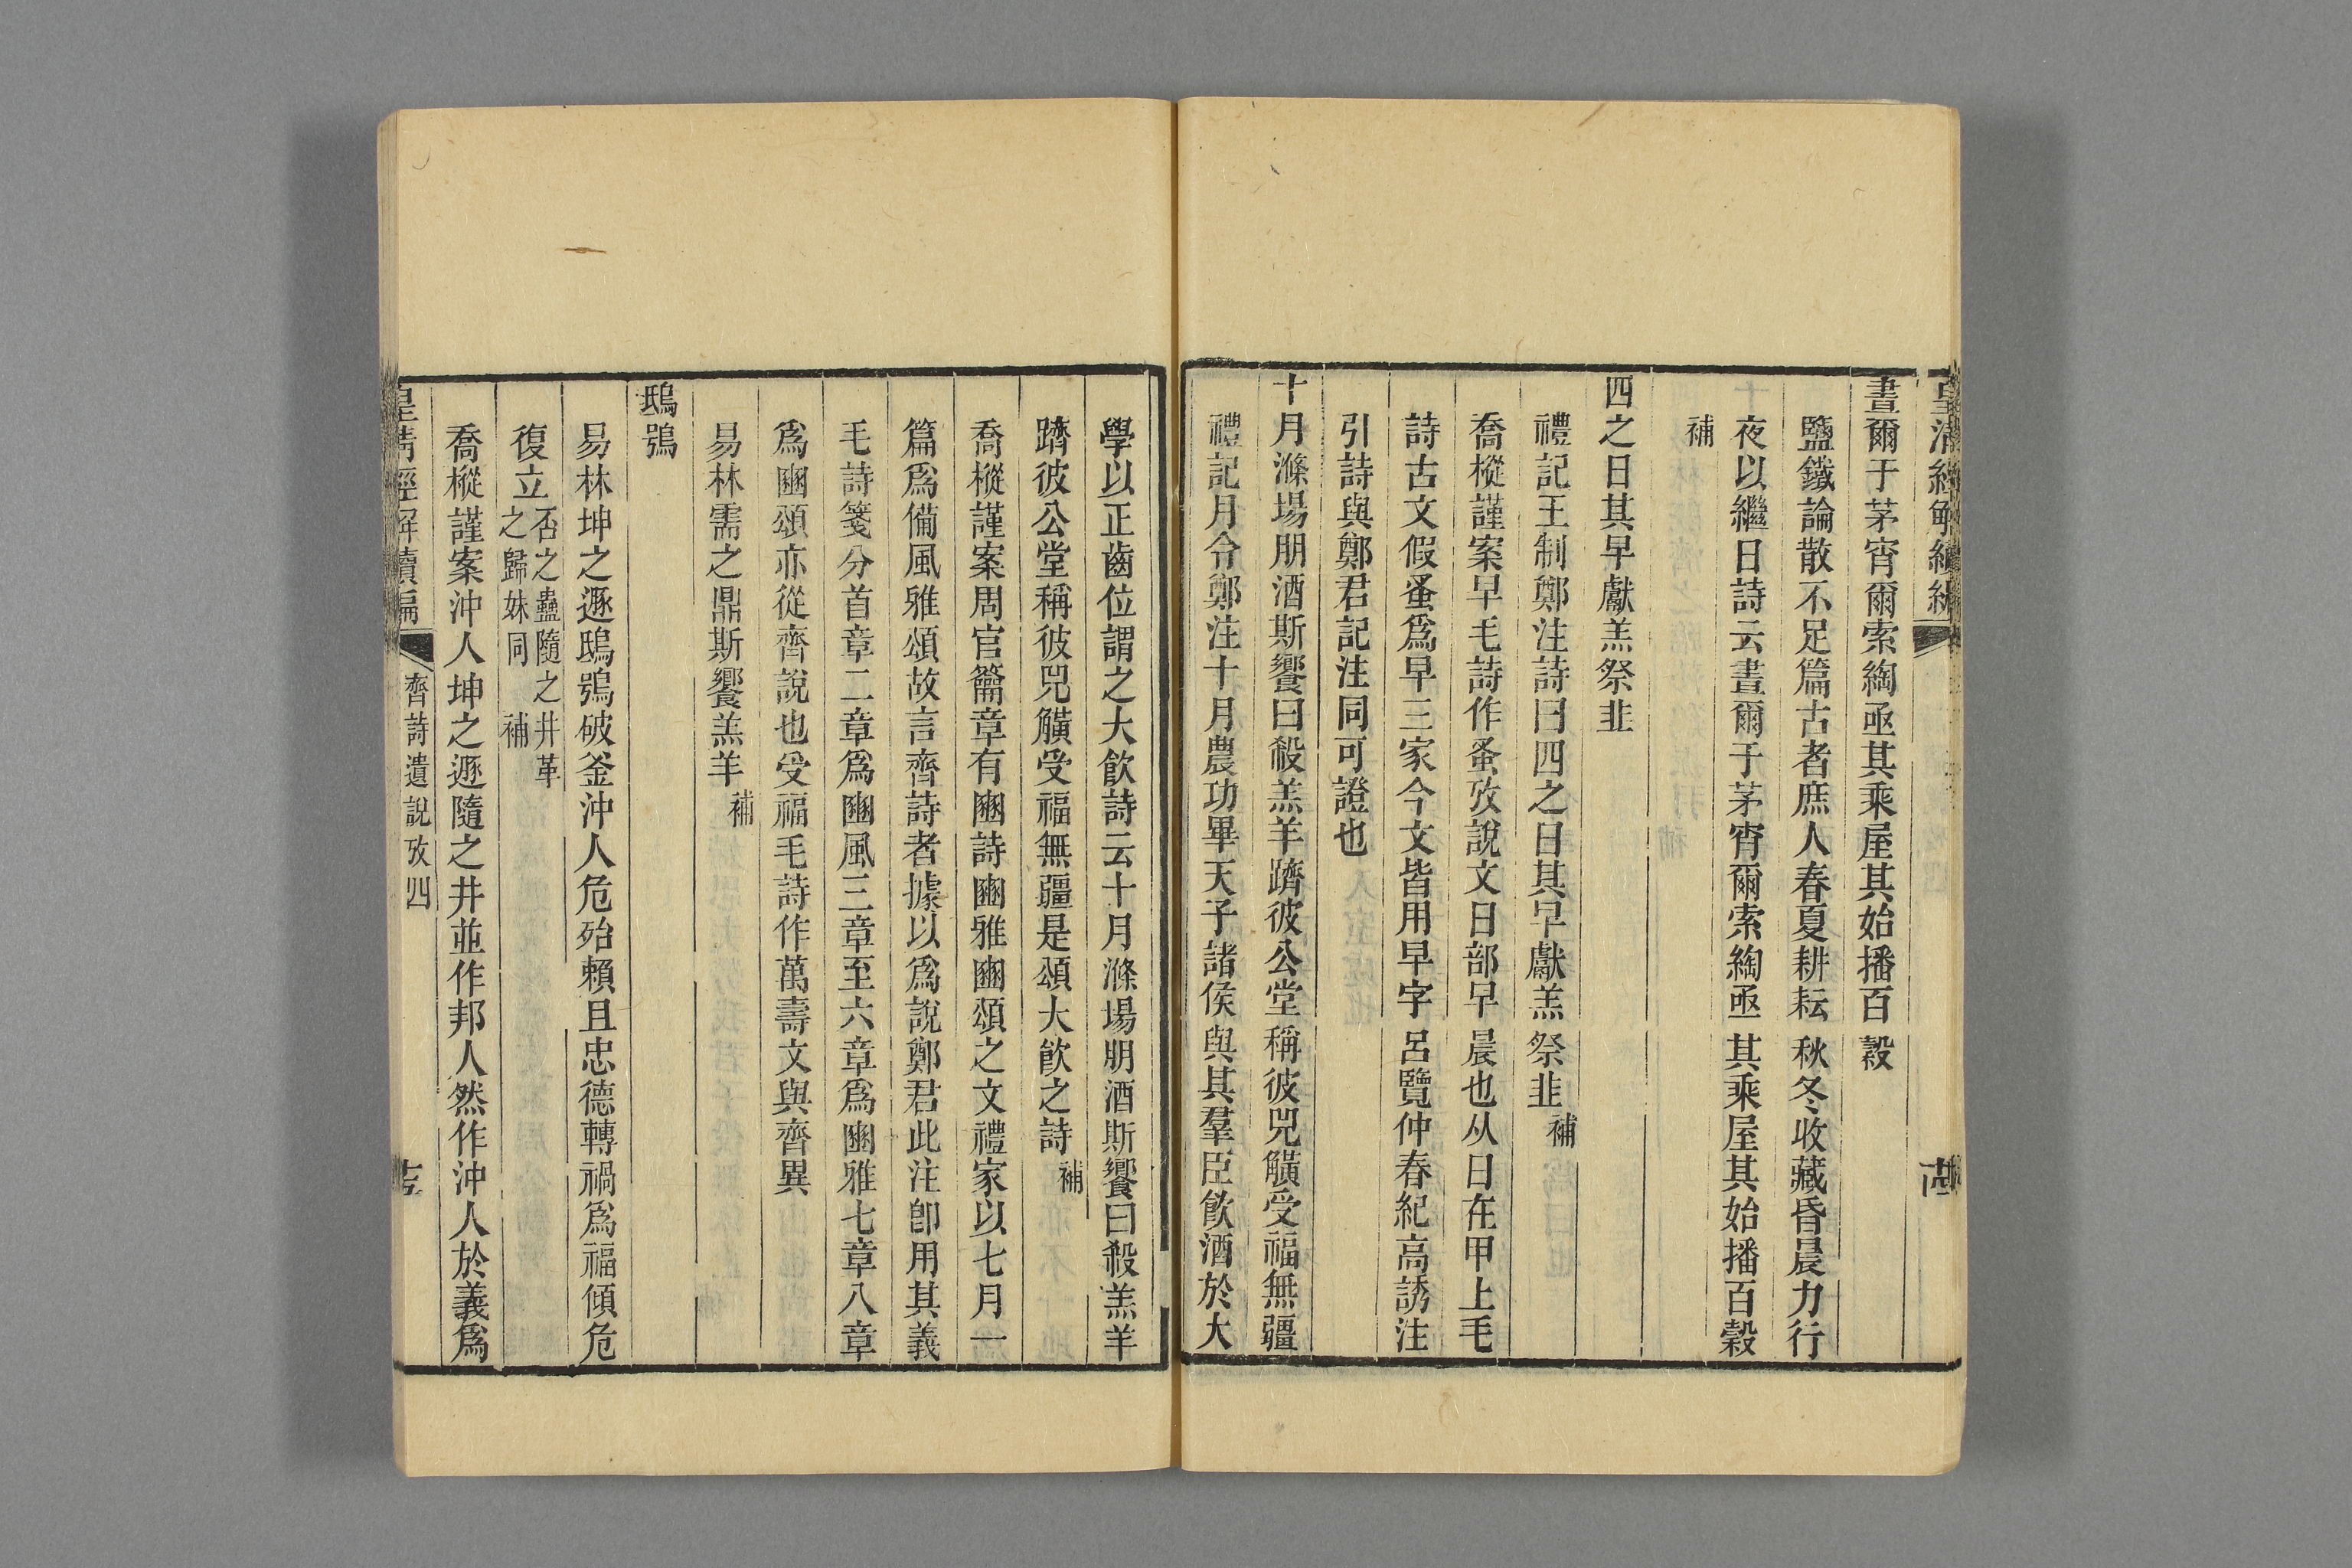 皇清經解續編
晝爾于茅宵爾索綯亟其乘屋其始播百穀
鹽鐵論散不足篇古者庶人春夏耕耘秋冬收藏昏晨力行
夜以繼日詩云晝爾于茅宵爾索綯亟其乘屋其始播百穀
補
四之日其早獻羔祭韭
禮記王制鄭注詩曰四之日其早獻羔祭韭補
喬樅謹案早毛詩作蚤攷說文日部早晨也从日在甲上毛
詩古文假蚤爲早三家今文皆用早字呂覽仲春紀高誘注
引詩與鄭君記注同可證也
十月滌場朋酒斯饗曰殺羔羊躋彼公堂稱彼兕觵受福無疆
禮記月令鄭注十月農功畢天子諸侯與其羣臣飲酒於大
學以正齒位謂之大飲詩云十月滌場朋酒斯饗曰殺羔羊
躋彼公堂稱彼兕觵受福無疆是頌大飲之詩補
喬樅謹案周官籥章有豳詩豳雅豳頌之文禮家以七月一
篇爲備風雅頌故言齊詩者據以爲說鄭君此注卽用其義
毛詩箋分首章二章爲豳風三章至六章爲豳雅七章八章
爲豳頌亦從齊說也受福毛詩作萬壽文與齊異
易林需之鼎斯饗羔羊補
鴟鴞
易林坤之遯鴟鴞破斧沖人危殆賴旦忠德轉禍爲福傾危
復立否之蠱隨之井革之歸妹同補
喬樅謹案沖人坤之遯隨之井並作邦人然作沖人於義爲
皇清經解續編
齊詩遺說攷四